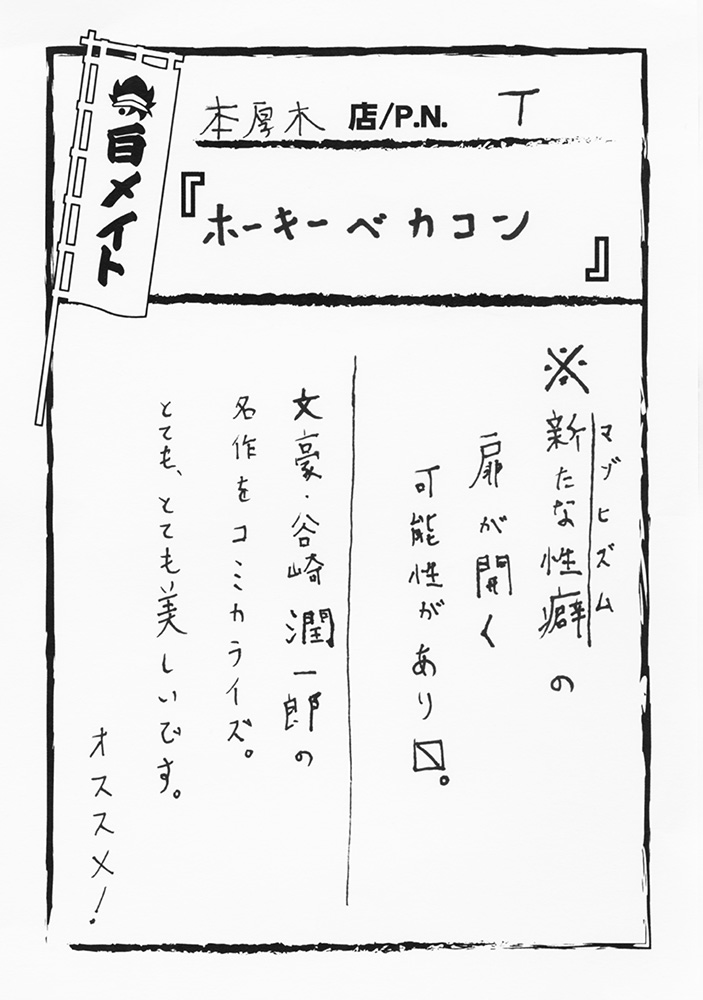 百メイト
本厚木 店/P.N. T
『ホーキーベカコン』
※新たな性癖の
マゾヒズム
扉が開く
可能性があり〼。
文豪・谷崎潤一郎の
名作をコミカライズ。
とても、とても美しいです。
オススメ！